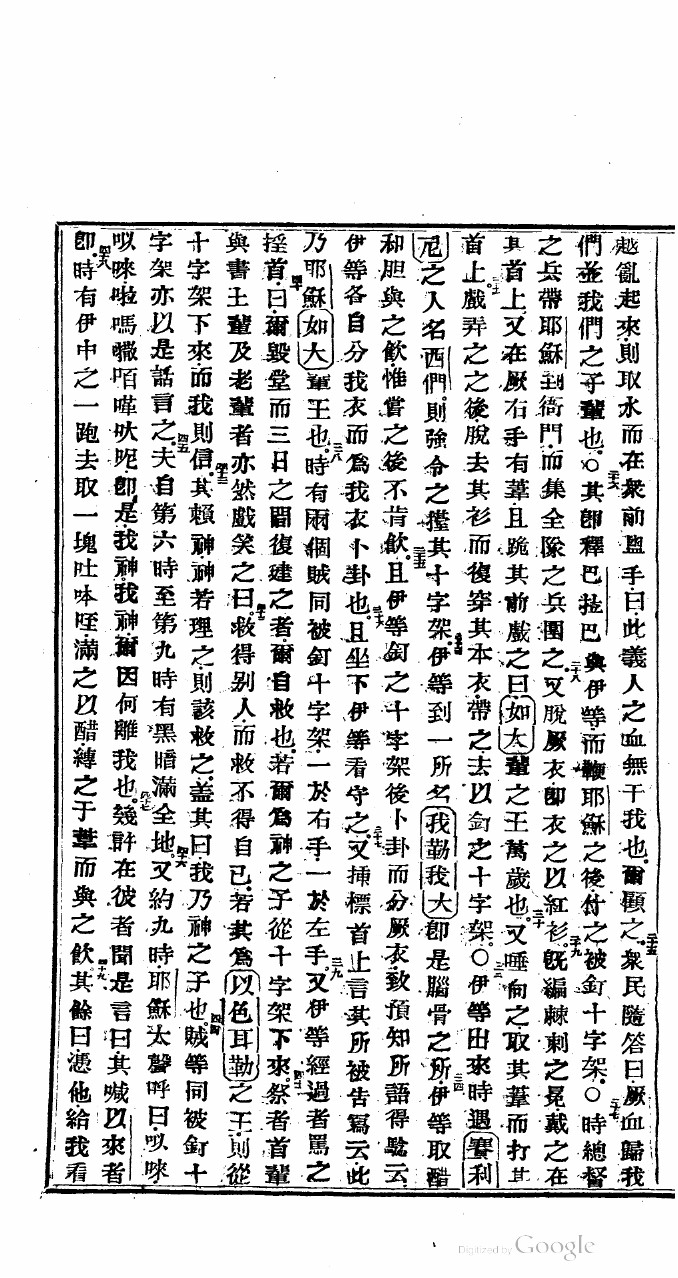 越亂起來則取水而在衆前盥手曰此義人之血無干我也爾顧之二十五衆民隨答曰厥血歸我
們並我們之子輩也○二十六其卽釋巴拉巴與伊等而鞭耶穌之後付之被釘十字架○二十七時總督
之兵帶耶穌到衙門而集全隊之兵圍之二十八又脫厥衣卽衣之以紅衫二十九旣編棘刺之冕戴之在
其首上又在厥右手有葦且跪其前戲之曰如大輩之王萬歲也三十又唾向之取其葦而打其
首上三十一戲弄之之後脫去其衫而復穿其本衣帶之去以釘之十字架○三十二伊等出來時遇賽利
尼之人名西們則強令之𢹂其十字架三十三伊等到一所名我勒我大卽是腦骨之所三十四伊等取醋
和胆與之飲惟嘗之後不肯飲三十五且伊等釘之十字架後卜卦而分厥衣致預知所語得驗云
伊等各自分我衣而爲我衣卜卦也三十六且坐下伊等看守之三十七又揷標首上言其所被告寫云此
乃耶穌如大輩王也三十八時有兩個賊同被釘十字架一於右手一於左手三十九又伊等經過者罵之
搖首四十曰爾毀堂而三日之間復建之者爾自救也若爾爲神之子從十字架下來四十一祭者首輩
與書士輩及老輩者亦然戲笑之曰四十二救得别人而救不得自己若其爲以色耳勒之王則從
十字架下來而我則信四十三其賴神神若理之則該救之蓋其曰我乃神之子也四十四賊等同被釘十
字架亦以是話言之四十五夫自第六時至第九時有黑暗滿全地四十六又約九時耶穌大聲呼曰㕥唻
㕥唻啦嗎𠿕咟嘩吠呢卽是我神我神爾因何離我也四十七幾許在彼者聞是言曰其喊以來者
四十八卽時有伊中之一跑去取一塊吐咈咥滿之以醋縛之于葦而與之飲四十九其餘曰憑他給我看
Digitized by Google